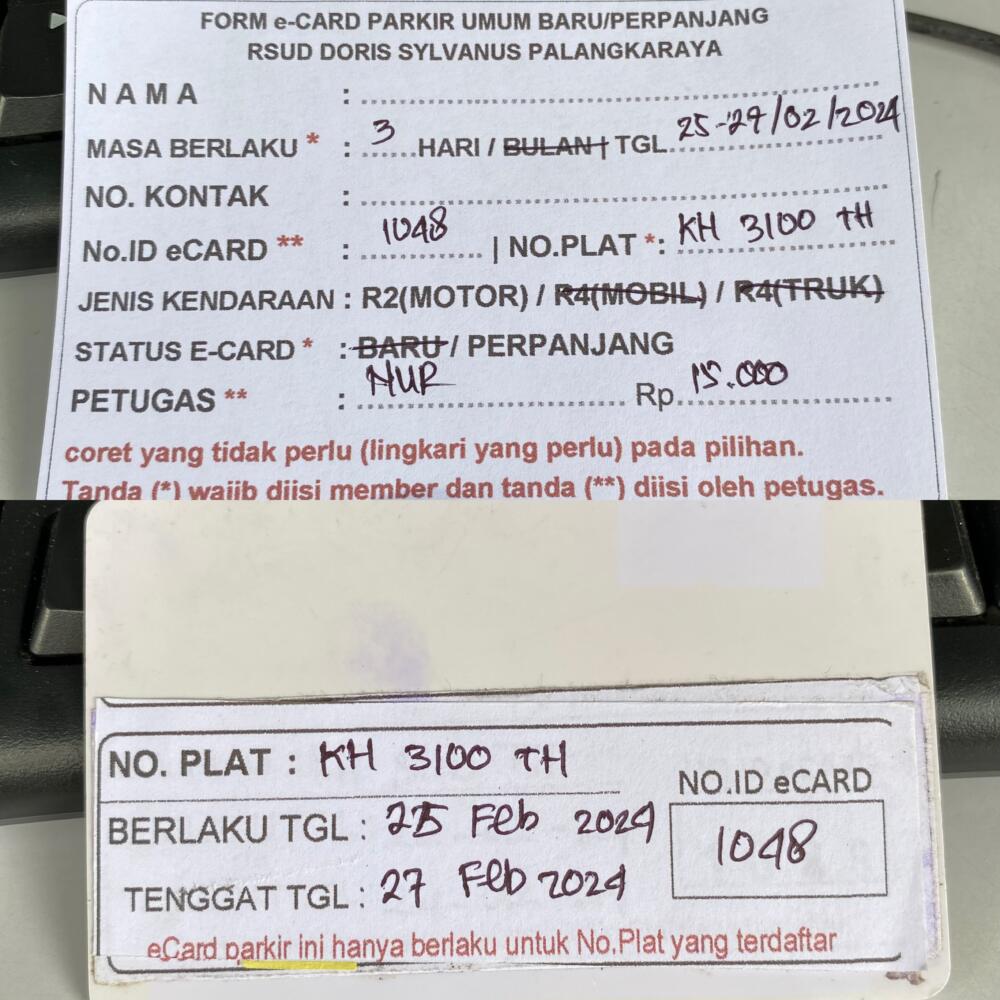 FORM e-CARD PARKIR UMUM BARU/PERPANJANG
RSUD DORIS SYLVANUS PALANGKARAYA
N A M A :
MASA BERLAKU * : 3 HARI / BULAN TGL 25-27/02/2024
NO. KONTAK :
No.ID eCARD ** : 1048 | NO.PLAT *: KH 3100 TH
JENIS KENDARAAN : R2(MOTOR) / R4(MOBIL) / R4(TRUK)
STATUS E-CARD * : BARU / PERPANJANG
PETUGAS ** : NUR Rp. 15.000
coret yang tidak perlu (lingkari yang perlu) pada pilihan.
Tanda (*) wajib diisi member dan tanda (**) diisi oleh petugas.
NO. PLAT : KH 3100 TH
NO.ID eCARD
BERLAKU TGL : 25 Feb 2024
1048
TENGGAT TGL : 27 Feb 2024
eCard parkir ini hanya berlaku untuk No.Plat yang terdaftar